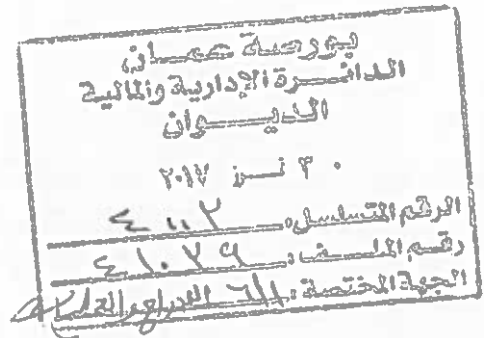 بورصة عمان
الدائرة الإدارية والمالية
الديوان
٣٠ تمز ٢٠١٧
الرقم المتسلسل:
رقم الملف: ٤١٠٢٩
الجهة المختصة: